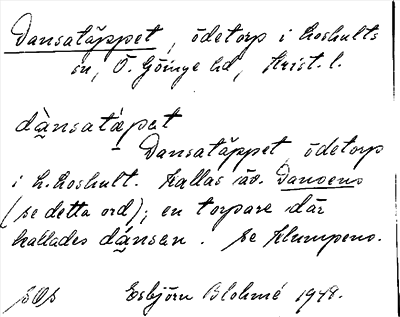 Dansatäppet, ödetorp i Loshults
sn, Ö. Göinge hd, Krist. l.
dànsatæpət
- Dansatäppet, ödetorp
i L. Loshult. Kallas äv. Dansens
(se detta ord); en torpare där
kallades dánsen. Se Klumpens.
Esbjörn Blohmé 1948.